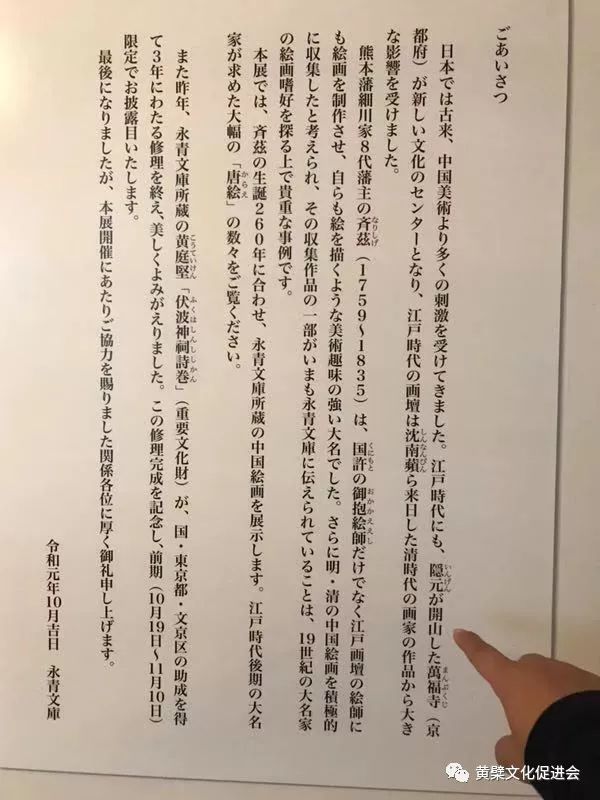 ごあいさつ
日本では古来、中国美術より多くの刺激を受けてきました。江戸時代にも、隠元が開山した萬福寺（京
いんげん
まんぷくじ
都府）が新しい文化のセンターとなり、江戸時代の画壇は沈南蘋ら来日した清時代の画家の作品から大き
しんなんぴん
な影響を受けました。
熊本藩細川家8代藩主の斉茲（1759〜1835）は、国許の御抱絵師だけでなく江戸画壇の絵師に
なりしげ
くにもと
おかかええし
も絵画を制作させ、自らも絵を描くような美術趣味の強い大名でした。さらに明・清の中国絵画を積極的
に収集したと考えられ、その収集作品の一部がいまも永青文庫に伝えられていることは、19世紀の大名家
の絵画嗜好を探る上で貴重な事例です。
本展では、斉茲の生誕260年に合わせ、永青文庫所蔵の中国絵画を展示します。江戸時代後期の大名
家が求めた大幅の「唐絵」の数々をご覧ください。
からえ
また昨年、永青文庫所蔵の黄庭堅「伏波神祠詩巻」（重要文化財）が、国・東京都・文京区の助成を得
こうていけん
ふくはしんししかん
て3年にわたる修理を終え、美しくよみがえりました。この修理完成を記念し、前期（10月19日〜11月10日）
限定でお披露目いたします。
最後になりましたが、本展開催にあたりご協力を賜りました関係各位に厚く御礼申し上げます。
令和元年10月吉日 永青文庫
黄檗文化促进会